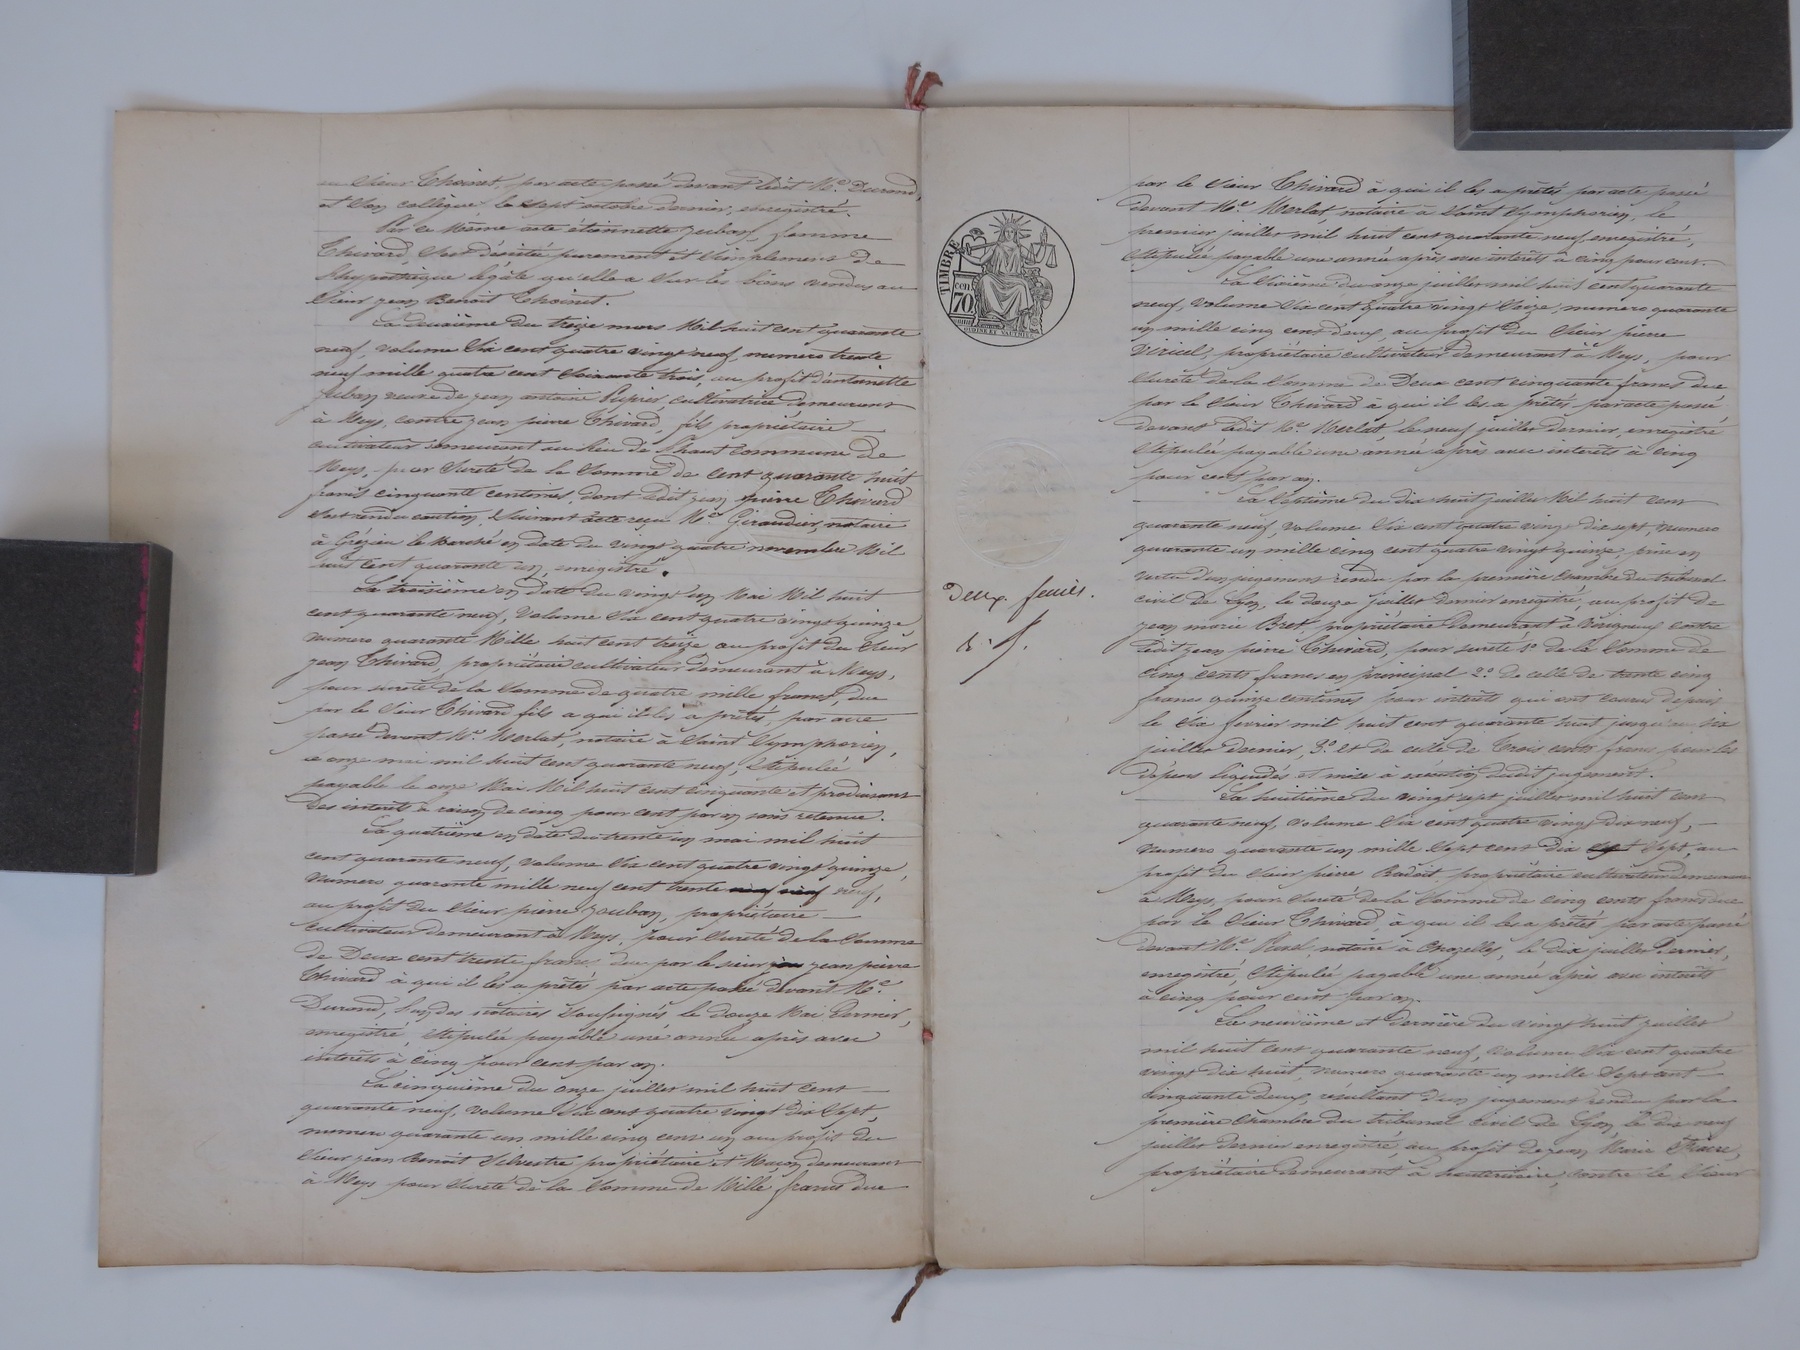 au Sieur Thoinet, par acte passé devant ledit Me. Durand,
et son collègue le sept octobre dernier, enregistré.
Par ce même acte étiennette Juban, femme
Thivard, s'est désistée purement et simplement de
l'hypothèque légale qu'elle a sur les biens vendus au
Sieur jean Benoit Thoinet.
La deuxième du treize mars Mil huit cent quarante
neuf, volume Six cent quatre vingt neuf, numero trente
neuf mille quatre cent soixante trois, au profit d'antoinette
Juban veuve de jean antoine Dupré, cultivatrice demeurant
à Meys, contre jean pierre Thivard, fils propriétaire
cultivateur demeurant au lieu de commune de
Meys, pour Sureté de la Somme de cent quarante huit
francs cinquante centimes, dont ledit jean pierre Thivard
s'est rendu caution, Suivant acte reçu Me. Giraudier, notaire
à Grézieu le Marché en date du vingt quatre novembre Mil
huit Cent quarante un, enregistré.
La troisième en date du vingt un Mai Mil huit
cent quarante neuf, Volume Six cent quatre vingt quinze
numero quarante Mille huit cent treize au profit du Sieur
jean Thivard, propriétaire cultivateur demeurant à Meys,
pour sureté de la Somme de quatre mille francs, due
par le Sieur Thivard fils a qui il les a prêtés, par acte
passé devant Me. Merlat, notaire à Saint Symphorien,
le onze mai mil huit cent quarante neuf, Stipulée
payable le onze Mai Mil huit cent cinquante et produisant
Des interets à raison de cinq pour cent par an sans retenue.
La quatrième en date du trente un mai mil huit
cent quarante neuf, volume Six cent quatre vingt quinze,
Numero quarante mille neuf cent trente neuf,
au profit du Sieur pierre Jouban, propriétaire
cultivateur demeurant à Meys, pour Sureté de la Somme
de Deux cent trente francs due par le sieur jean pierre
Thivard à qui il les a prêtés par acte passé devant Me.
Durand, l'un des notaires Soussignés le douze Mai Dernier,
enregistré, Stipulée payable une année après avec
interêts à cinq pour cent par an.
La cinquième du onze juillet mil huit cent
quarante neuf, volume Six cent quatre vingt dix Sept,
numero quarante un mille cinq cent un au profit du
Sieur jean Benoit Silvestre propriétaire et Maçon demeurant
à Meys pour Sureté de la Somme de Mille francs due
TIMBRE
70
cen
Deux. feuil.
par le Sieur Thivard à qui il les a prêtés par acte passé
devant Me. Merlat, notaire à Saint Symphorien, le
premier juillet mil huit cent quarante neuf, enregistré,
Stipulée payable une année après avec intérêts à cinq pour cent.
La Sixième du onze juillet mil huit cent quarante
neuf, volume Six cent quatre vingt Seize, numero quarante
un mille cinq cent deux, au profit du Sieur pierre
Viricel, propriétaire cultivateur demeurant à Meys, pour
Sureté de la Somme de Deux cent cinquante francs due
par le Sieur Thivard à qui il les a prêtés, par acte passé
devant ledit Me. Merlat, le neuf juillet dernier, enregistré
Stipulée payable une année après avec intérêts à cinq
pour cent par an.
La Septième du dix huit juillet Mil huit cent
quarante neuf, volume Six cent quatre vingt dix sept, numero
quarante un mille cinq cent quatre vingt quinze, prise en
vertu d'un jugement rendu par la première Chambre du tribunal
civil de Lyon, le douze juillet dernier enregistré, au profit de
jean marie Bret, propriétaire demeurant à contre
ledit jean pierre Thivard, pour sureté 1o. de la Somme de
cinq cents francs en principal 2o. de celle de trente cinq
francs quinze centimes pour interêts qui ont couru depuis
le Six fevrier mil huit cent quarante huit jusqu'au Six
juillet dernier, 3o. et de celle de Trois cents francs pour les
dépens liquidés et mise à exécution dudit jugement.
La huitième du vingt sept juillet mil huit cent
quarante neuf, volume Six cent quatre vingt Dix neuf,
numero quarante un mille Sept cent dix Sept, au
profit du Sieur pierre Badoit, propriétaire cultivateur demeurant
à Meys, pour Sureté de la Somme de cinq cents francs due
par le Sieur Thivard, à qui il les a prêtés par acte passé
devant Me. notaire à Chazelles, le dix juillet Dernier,
enregistré, Stipulée payable une année après avec interêts
à cinq pour cent par an.
La neuvième et dernière du vingt huit juillet
mil huit cent quarante neuf, volume Six cent quatre
vingt dix huit, numero quarante un mille Sept cent
cinquante deux, résultant d'un jugement rendu par la
première Chambre du tribunal civil de Lyon le dix neuf
juillet dernier enregistré, au profit de jean Marie
propriétaire demeurant à contre le Sieur